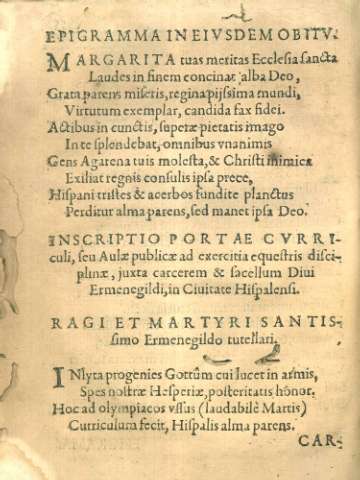 EPIGRAMMA IN EIVSDEM OBITV.
MARGARITA tuas meritas Ecclesia sancta
Laudes in finem concinat alba Deo,
Grata parens miseris, regina pijssima mundi,
Virtutum exemplar, candida fax fidei.
Actibus in cunctis, superæ pietatis imago
In te splendebat, omnibus vnanimis
Gens Agarena tuis molesta, & Christi inimica
Exiliat regnis consulis ipsa prece,
Hispani tristes & acerbos fundite planctus
Perditur alma parens, sed manet ipsa Deo.
INSCRIPTIO PORTAE CVRRI-
culi, seu Aulæ publicæ ad exercitia equestris disci-
plinæ, juxta carcerem & sacellum Diui
Ermenegildi, in Ciuitate Hispalensi.
RAGI ET MARTYRI SANTIS-
simo Ermenegildo tutellari.
INlyta progenies Gottûm cui lucet in armis,
Spes nostræ Hesperiæ, posteritatis honor.
Hoc ad olympiacos vssus (laudabilè Martis)
Curriculum fecit, Hispalis alma parens.
CAR-